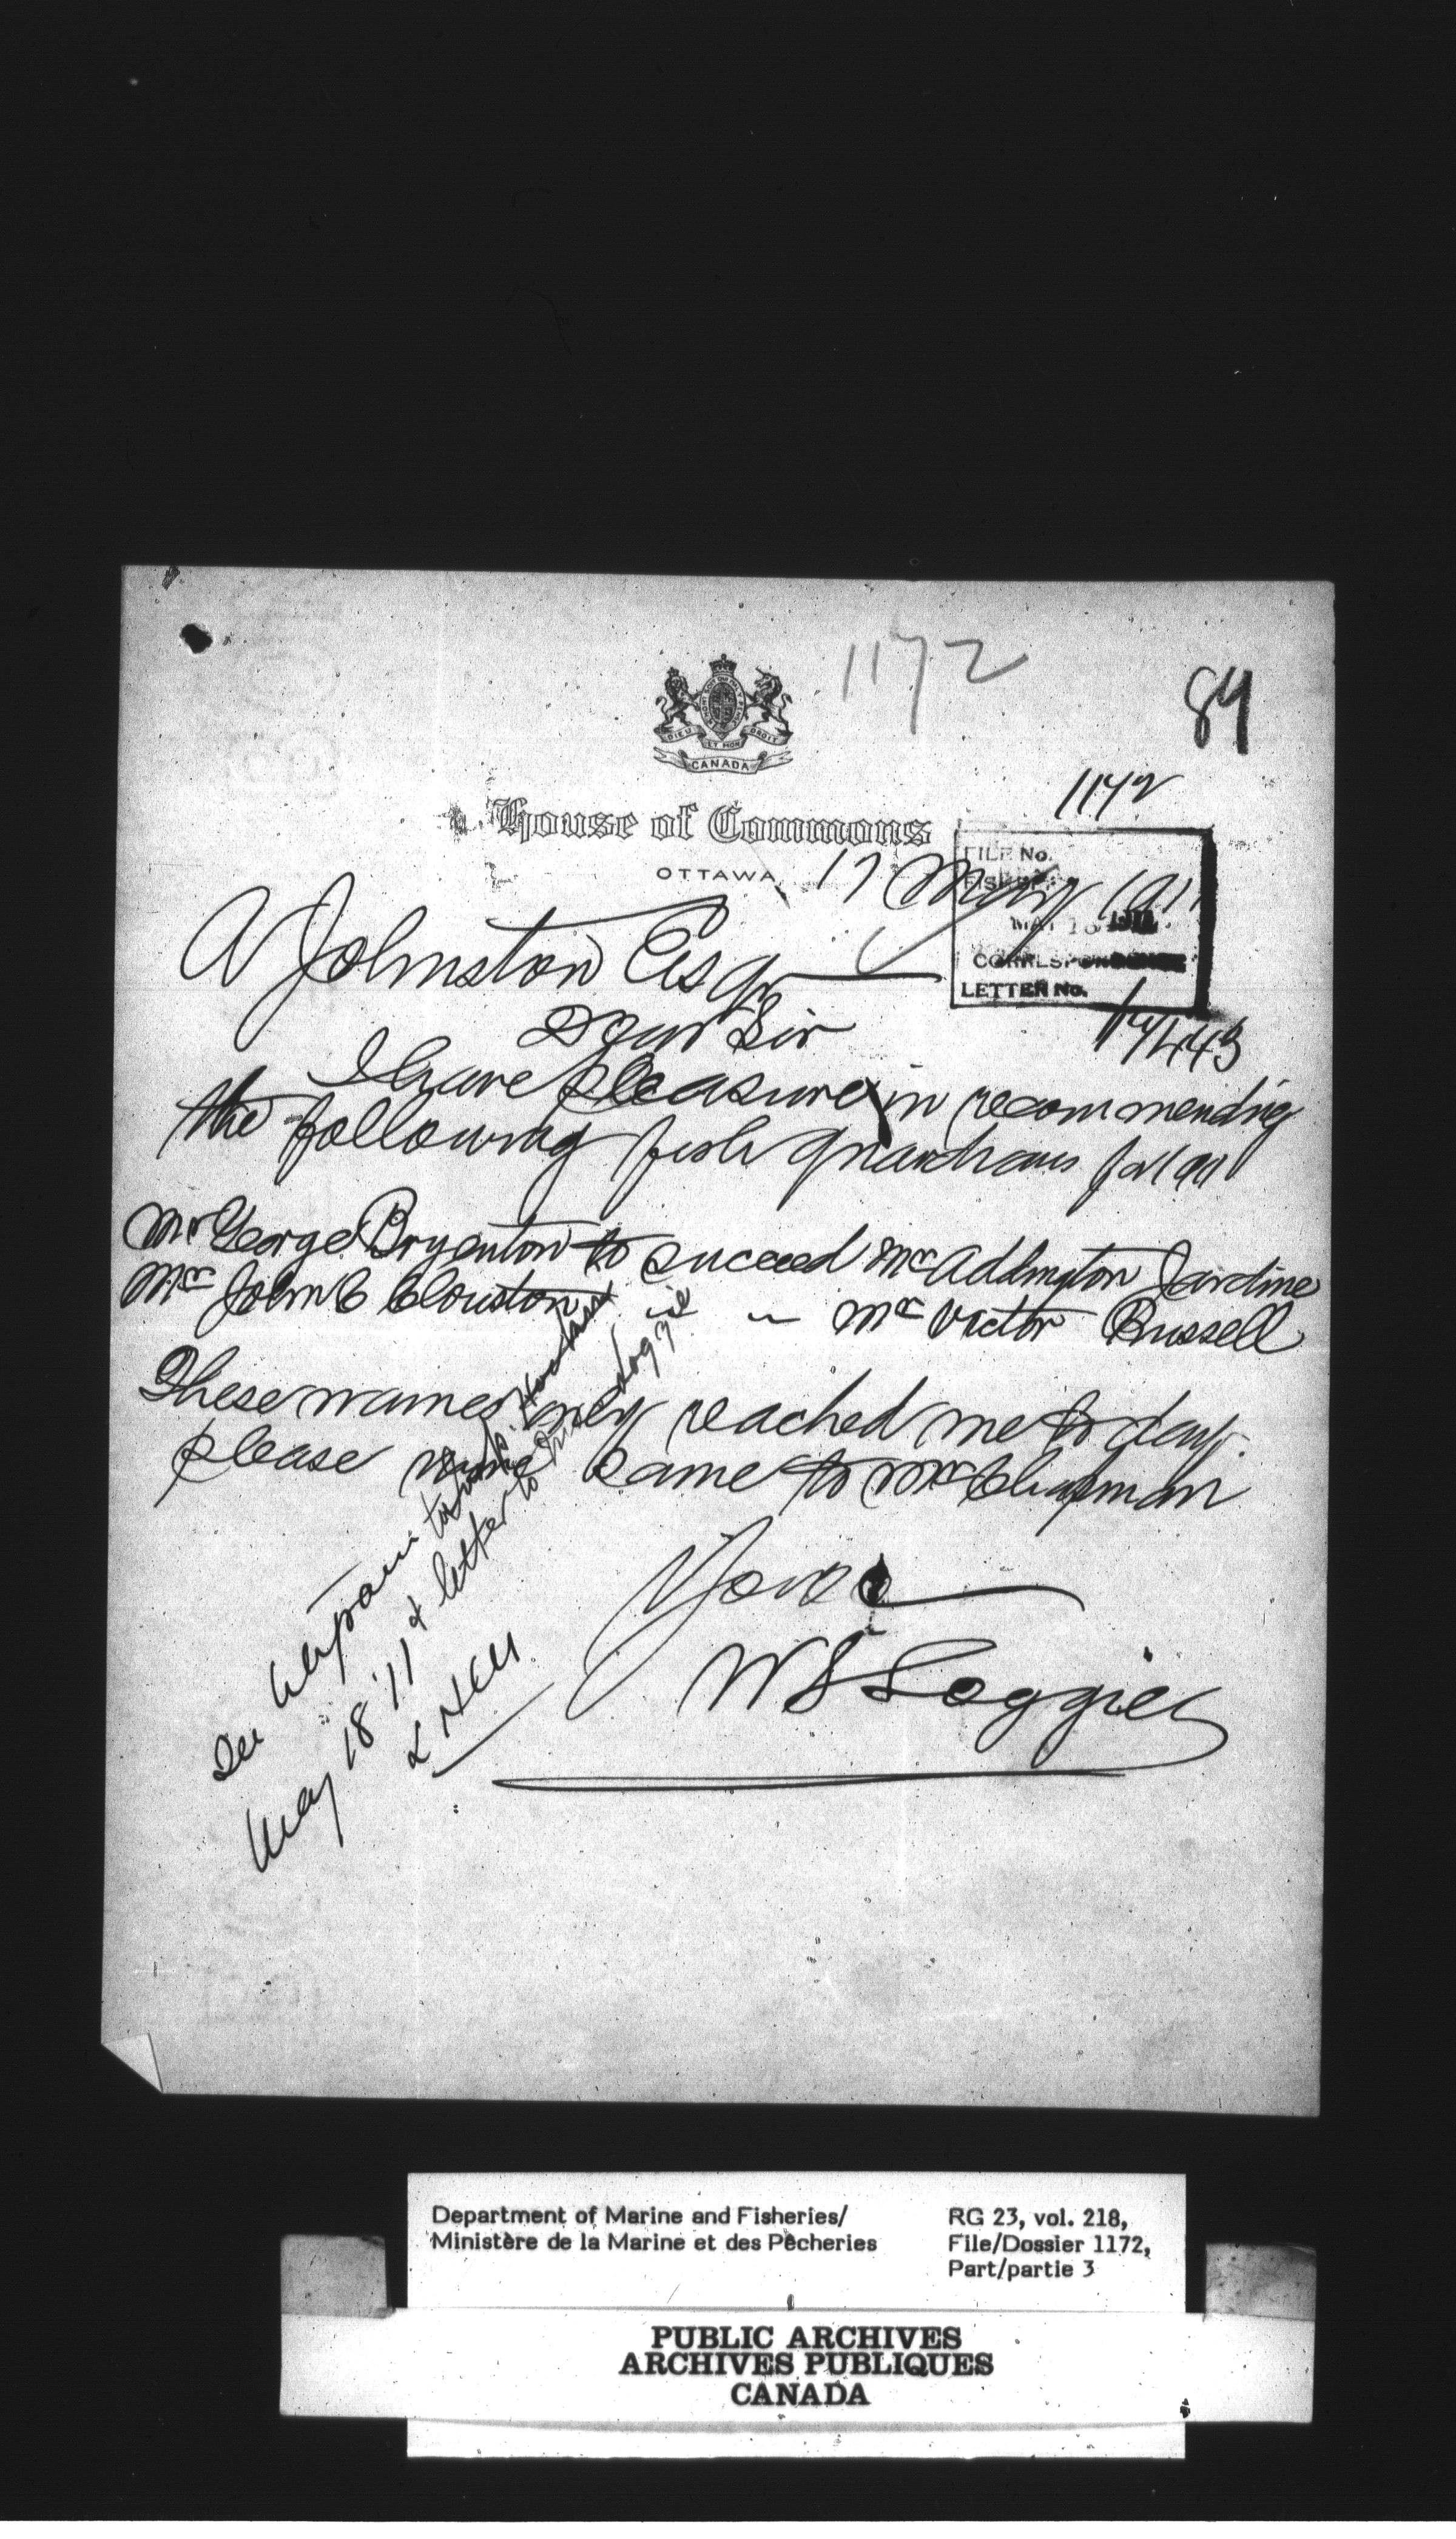 1172
84
DIEU ET MON DROIT
CANADA
1172
House of Commons
OTTAWA, 17 May 1911
FILE No.
FISHERI
MAY 18 1911
CORRESPONDENCE
LETTER No.
17443
A Johnston Esq
Dear Sir
I have pleasure in recommending
the following fish guardians for 1911
Mr George Bryenton to succeed Mr Addington Jardine
Mr John C Clouston " " Mr Victor Russell
These names only reached me to day.
please same to Mr Chapman
Yours
W S Loggie
May 18 '11 & letter to Loggie
Department of Marine and Fisheries/
Ministère de la Marine et des Pêcheries
RG 23, vol. 218,
File/Dossier 1172,
Part/partie 3
PUBLIC ARCHIVES
ARCHIVES PUBLIQUES
CANADA